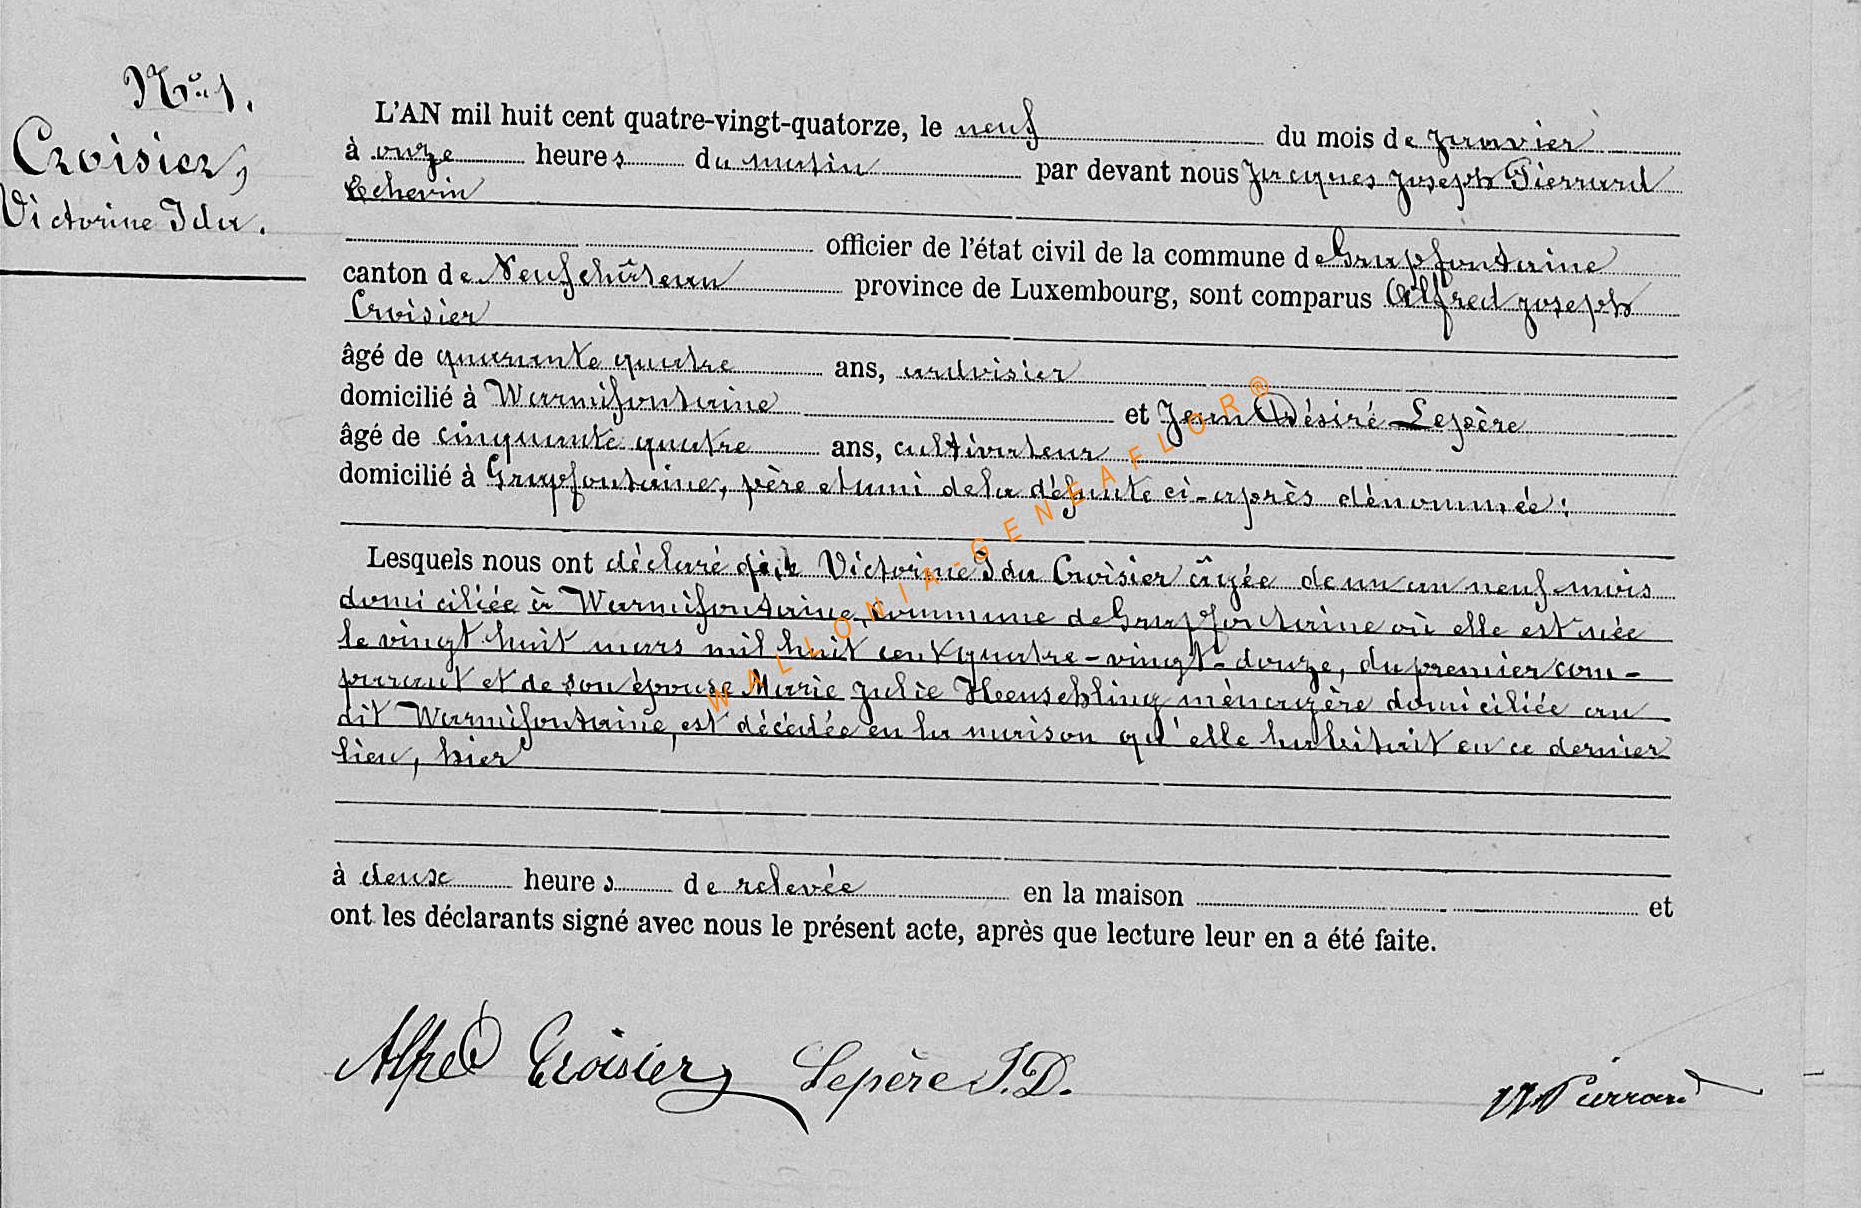 No. 1.
Croisier,
Victorine Ida.
L'AN mil huit cent quatre-vingt-quatorze, le neuf du mois de Janvier
à onze heures du matin par devant nous Jacques Joseph Pierrard
Echevin
officier de l'état civil de la commune de Grapfontaine
canton de Neufchâteau province de Luxembourg, sont comparus Alfred Joseph
Croisier
âgé de quarante quatre ans, ardoisier
domicilié à Warmifontaine et Jean Désiré Lepère
âgé de cinquante quatre ans, cultivateur
domicilié à Grapfontaine, père et ami de la défunte ci-après dénommée;
Lesquels nous ont déclaré que Victorine Ida Croisier âgée de un an neuf mois
domiciliée à Warmifontaine, commune de Grapfontaine où elle est née
le vingt huit mars mil huit cent quatre-vingt-douze, du premier com-
parant et de son épouse Marie Julie Heenschling ménagère domiciliée au
dit Warmifontaine, est décédée en la maison qu'elle habitait en ce dernier
lieu, hier
à deux heures de relevée en la maison et
ont les déclarants signé avec nous le présent acte, après que lecture leur en a été faite.
Alfred Croisier Lepère J.D. Pierrard
WALLONIA-GENEAFLOR®